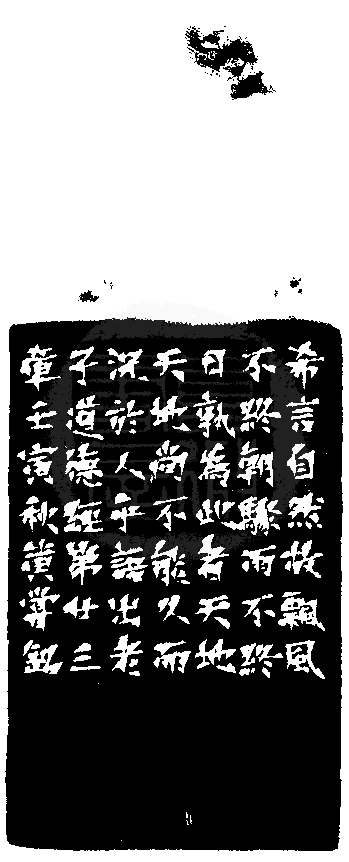 希言自然故飄風
不終朝驟雨不終
日孰為此者天地
天地尚不能久而
況於人乎語出老
子道德經第廿三
章壬寅秋黃嘗銘